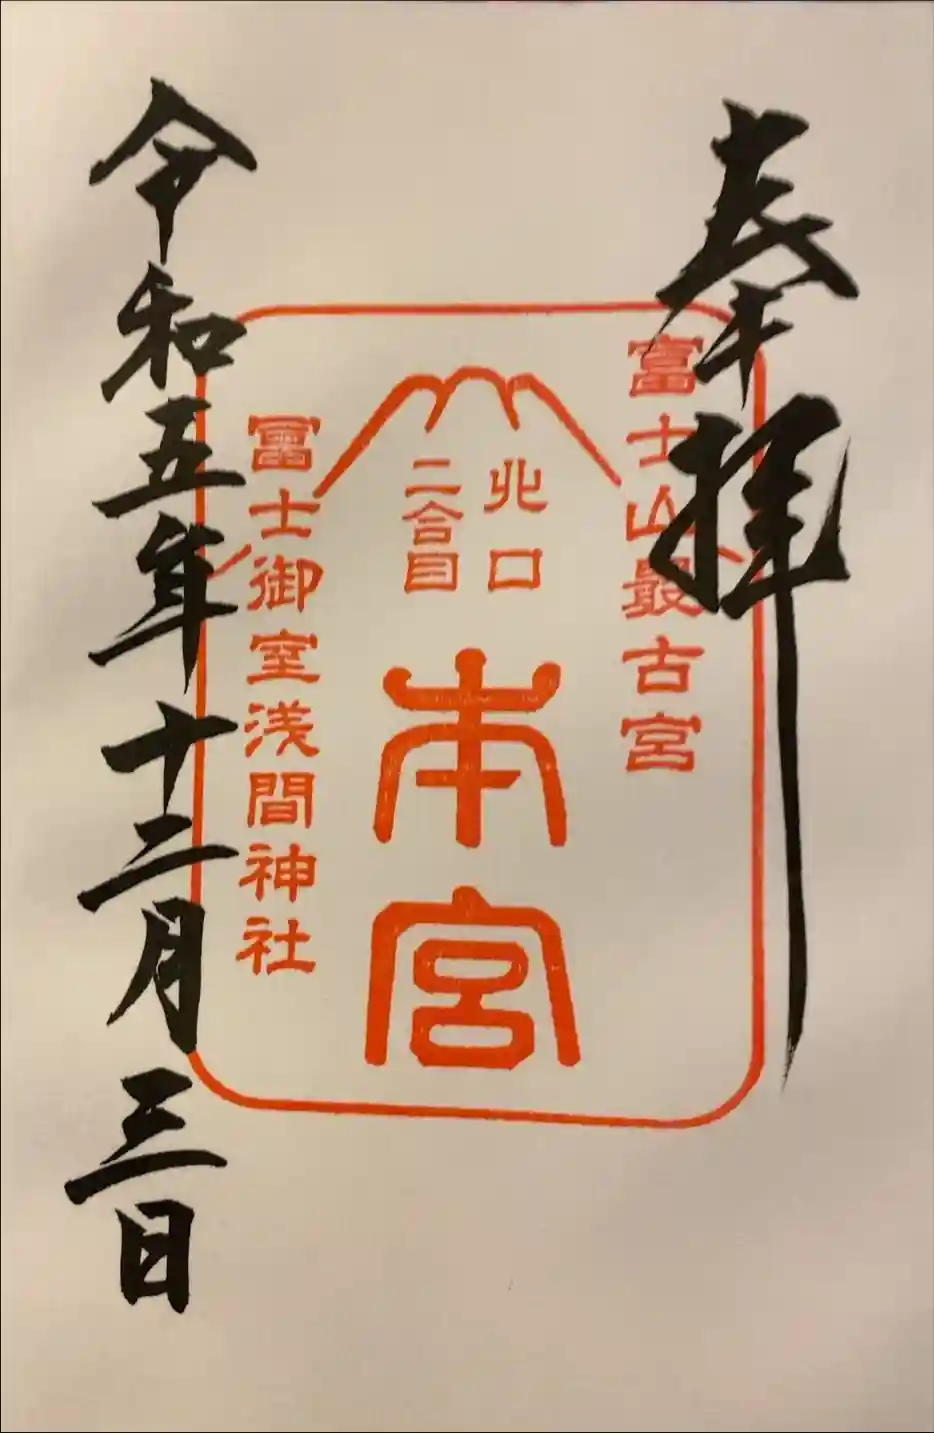 奉拝
富士山最古宮
北口
二合目
本宮
冨士御室浅間神社
令和五年十二月三日